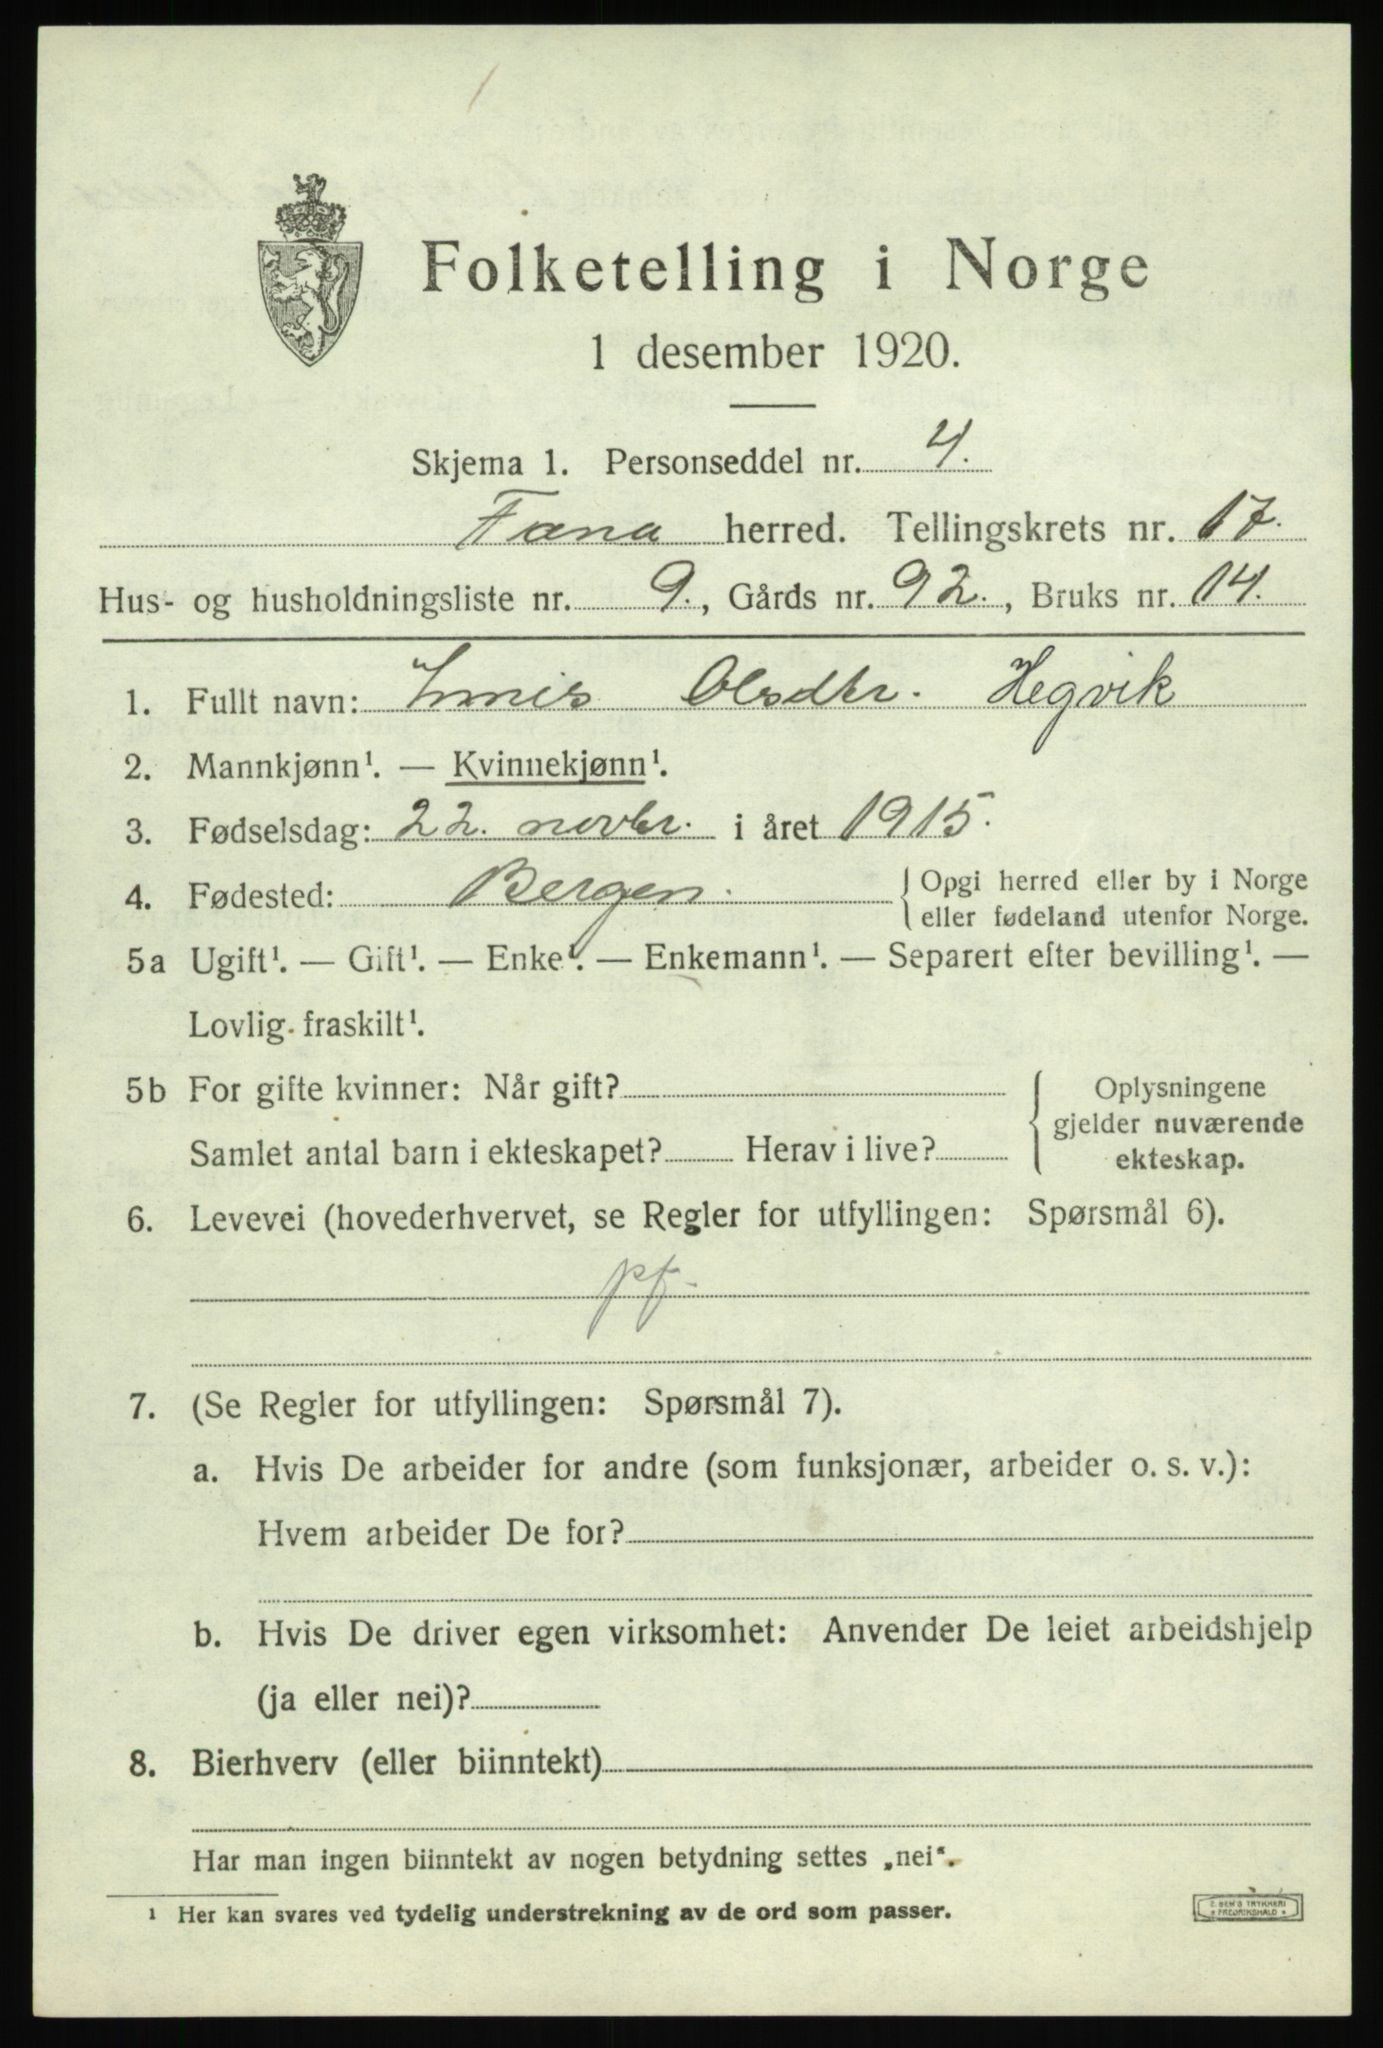 Folketelling i Norge
1 desember 1920.
Skjema 1. Personseddel nr. 4.
Fana herred. Tellingskrets nr. 17.
Hus- og husholdningsliste nr. 9., Gårds nr. 92., Bruks nr. 14.
1. Fullt navn: Olsdtr. Hegvik
2. Mannkjønn¹. — Kvinnekjønn¹.
3. Fødselsdag: 22. novbr. i året 1915.
4. Fødested: Bergen. { Opgi herred eller by i Norge
eller fødeland utenfor Norge.
5a Ugift¹. — Gift¹. — Enke¹. — Enkemann¹. — Separert efter bevilling¹. —
Lovlig fraskilt¹.
5b For gifte kvinner: Når gift? { Oplysningene
gjelder nuværende
Samlet antal barn i ekteskapet? Herav i live? ekteskap.
6. Levevei (hovederhvervet, se Regler for utfyllingen: Spørsmål 6).
pf.
7. (Se Regler for utfyllingen: Spørsmål 7).
a. Hvis De arbeider for andre (som funksjonær, arbeider o. s. v.):
Hvem arbeider De for?
b. Hvis De driver egen virksomhet: Anvender De leiet arbeidshjelp
(ja eller nei)?
8. Bierhverv (eller biinntekt)
Har man ingen biinntekt av nogen betydning settes „nei“.
¹ Her kan svares ved tydelig understrekning av de ord som passer.
SEM'S TRYKKERI
FREDRIKSHALD